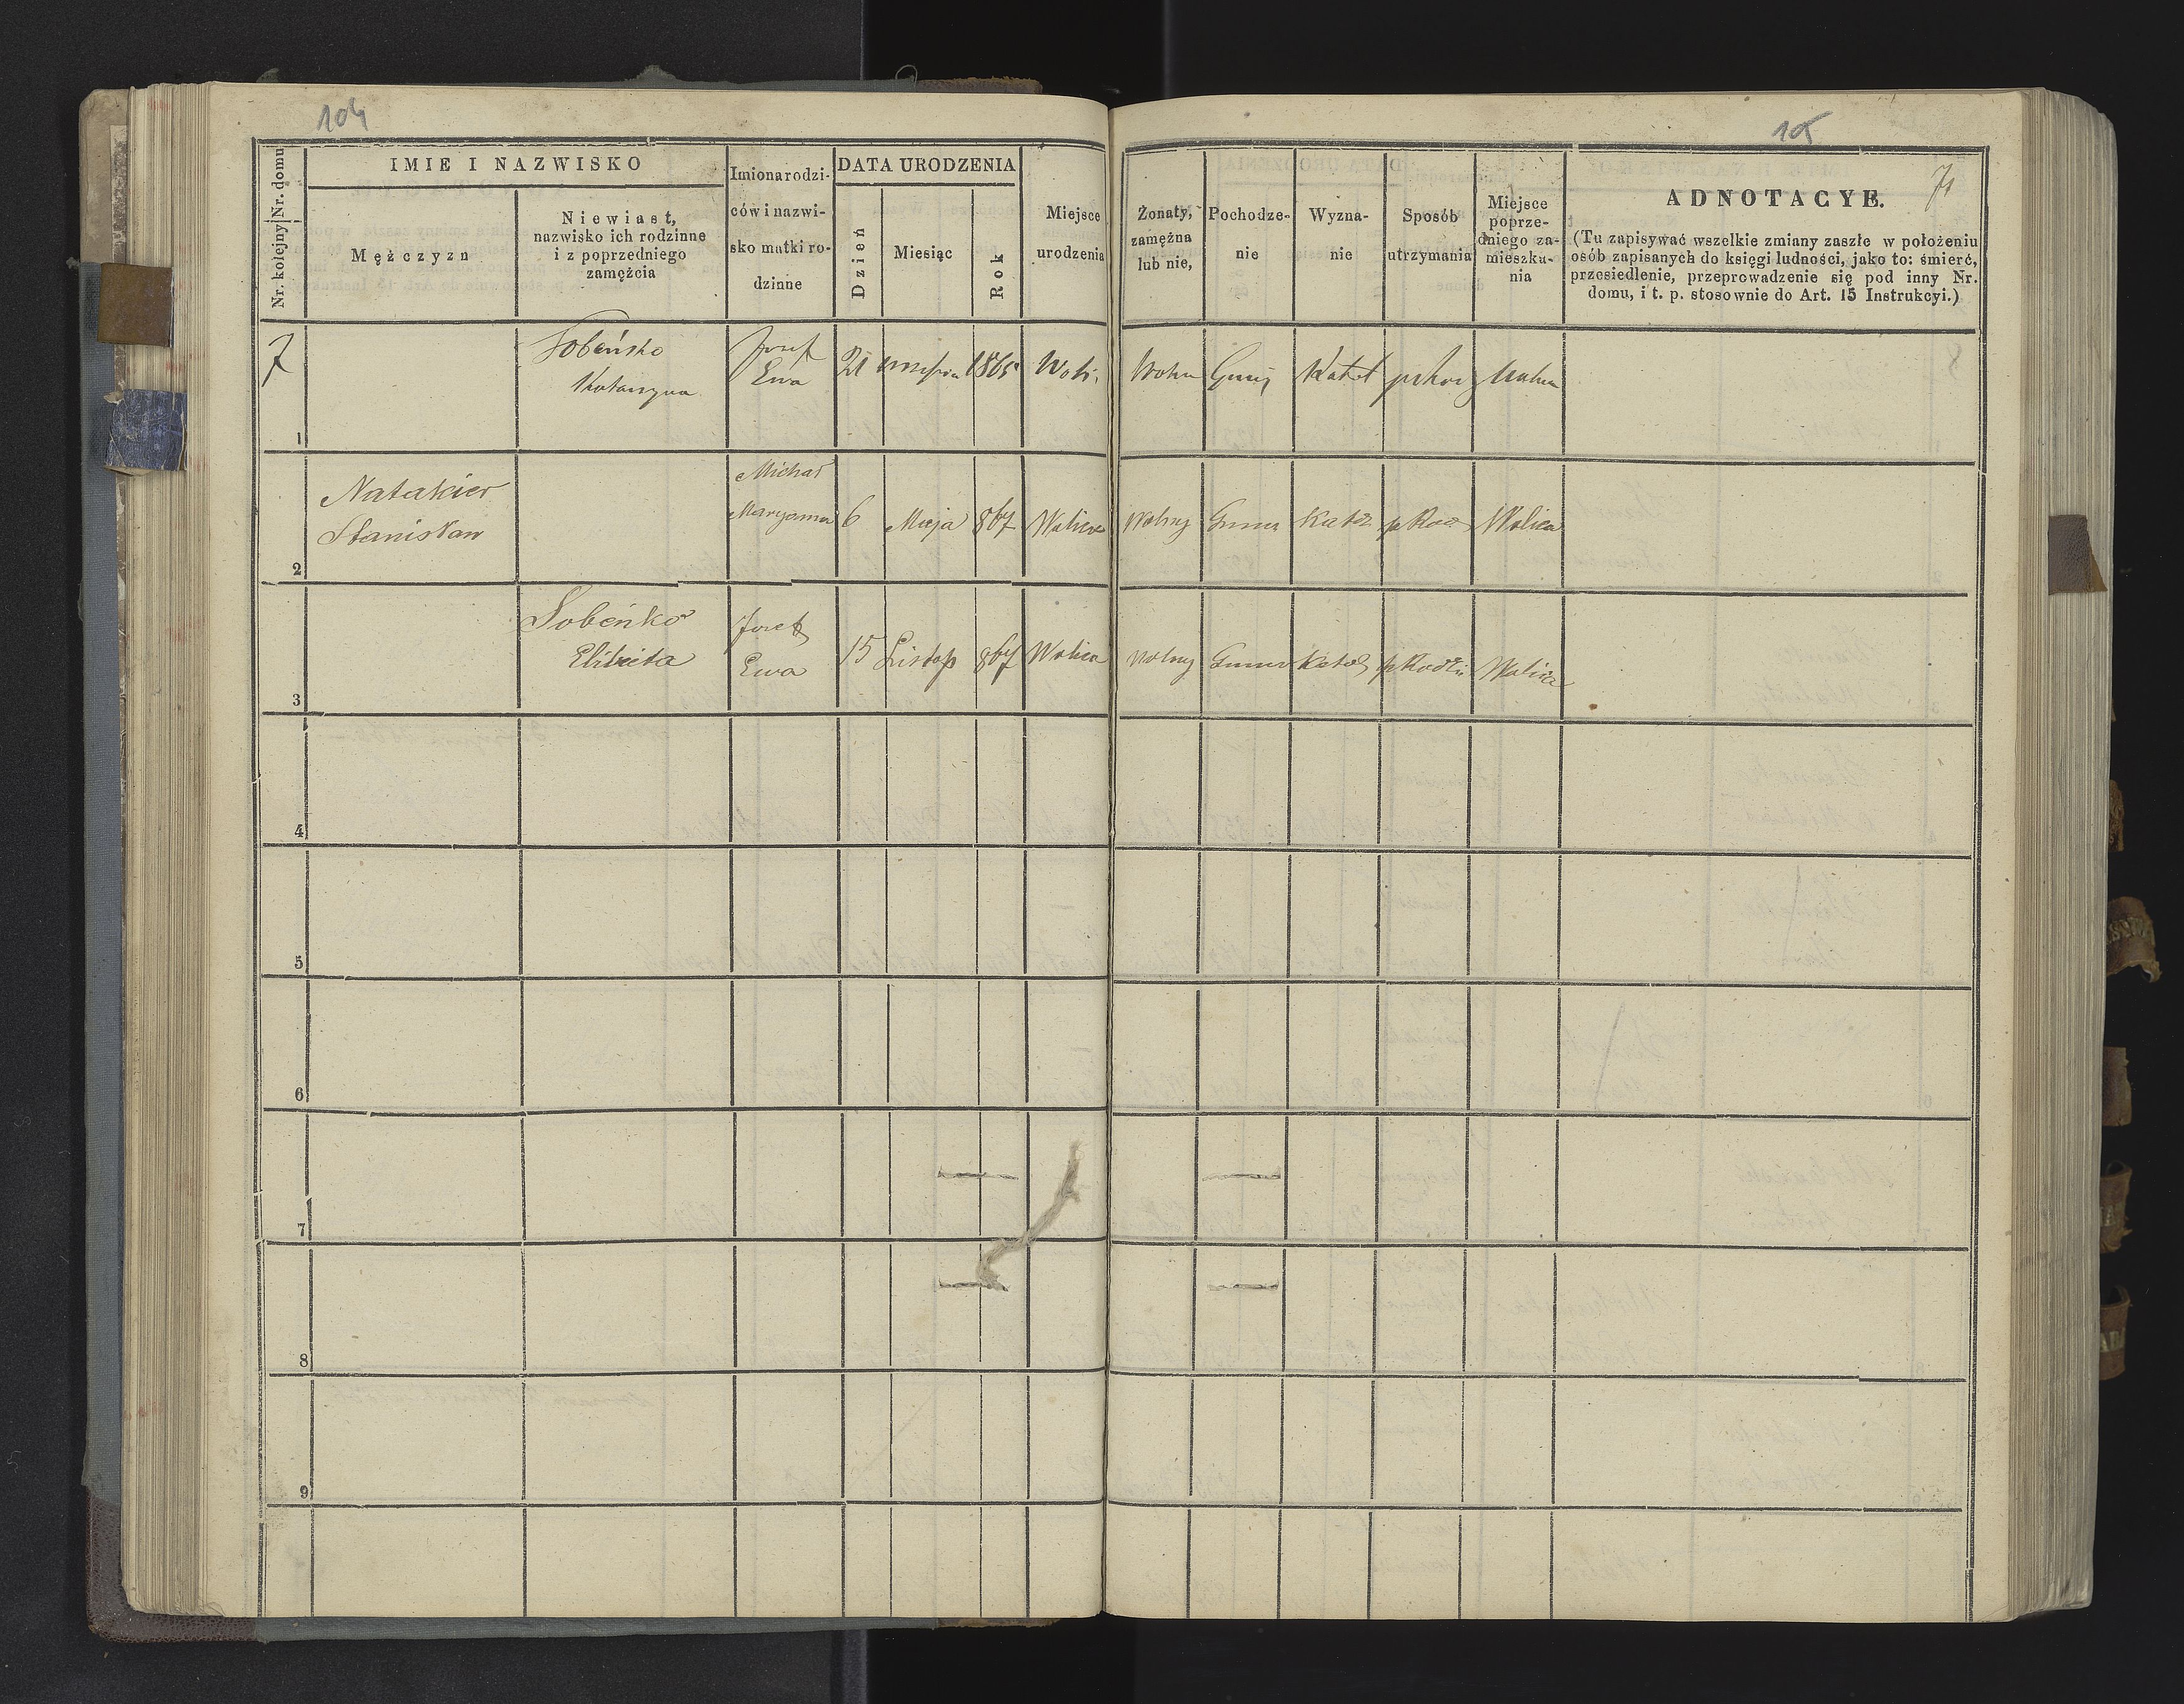 104
105
71
Nr. kolejny Nr. domu
IMIE I NAZWISKO
Mężczyzn
Niewiast,
nazwisko ich rodzinne
i z poprzedniego
zamężcia
Imiona rodzi-
ców i nazwi-
sko matki ro-
dzinne
DATA URODZENIA
Dzień
Miesiąc
Rok
Miejsce
urodzenia
Żonaty,
zamężna
lub nie,
Pochodze-
nie
Wyzna-
nie
Sposób
utrzymania
Miejsce
poprze-
dniego za-
mieszka-
nia
ADNOTACYE.
(Tu zapisywać wszelkie zmiany zaszłe w położeniu
osób zapisanych do księgi ludności, jako to: śmierć,
przesiedlenie, przeprowadzenie się pod inny Nr.
domu, i t. p. stosownie do Art. 15 Instrukcyi.)
7
1
Katarzyna
Józef
Ewa
21
1865
Katol
2
Natakier
Stanisław
Michał
Maryanna
6
Maja
867
Wolica
Wolny
Katol
Wolica
3
Sobeńko
Elżbieta
Józef
Ewa
15 Listop 867 Wolica
Wolny
Katol
Wolica
4
5
6
7
8
9